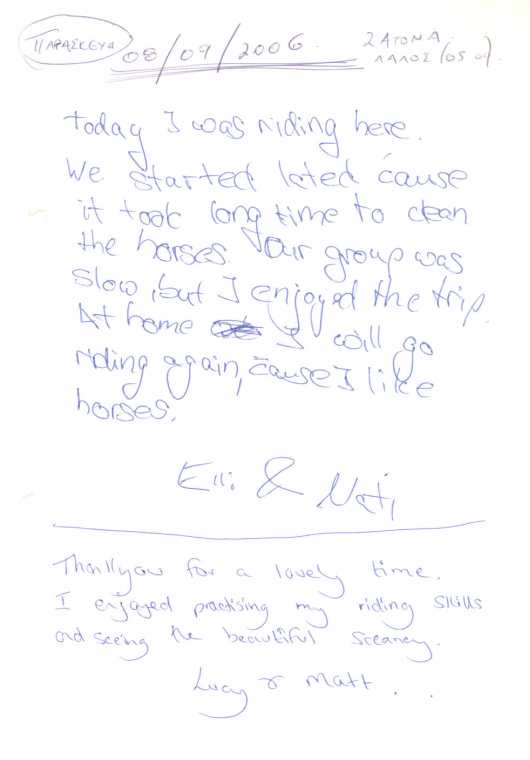 ΠΑΡΑΣΚΕΥΗ 08/09/2006 2 ΑΤΟΜΑ
today I was riding here.
We started lated cause
it took long time to clean
the horses. Our group was
slow, but I enjoyed the trip.
At home I will go
riding again, cause I like
horses.
Elli &
Thankyou for a lovely time.
I enjoyed practising my riding skills
and seeing the beautiful sceaney.
Lucy & Matt...